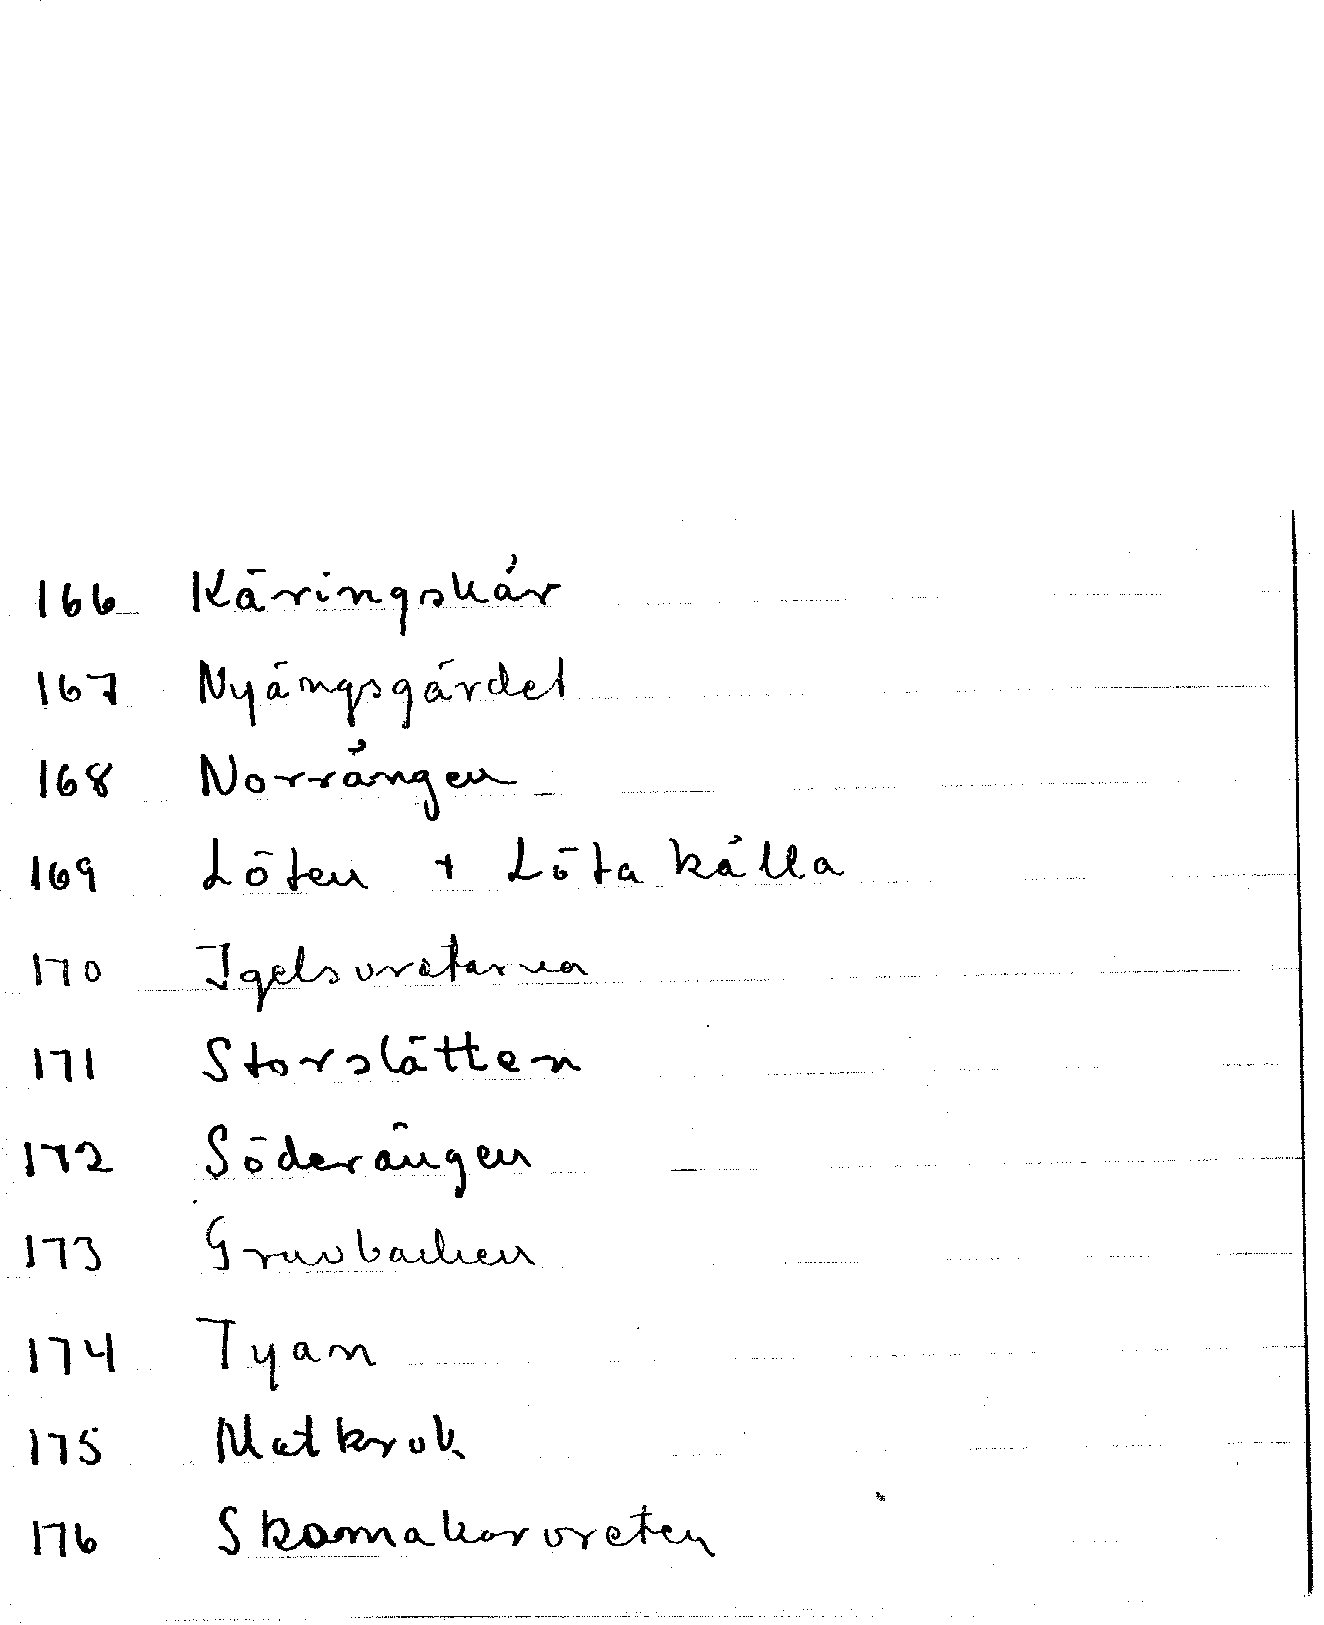 166 Käringskär
167 Nyängsgärdet
168 Norrängen
169 Löten + Löta källa
170 Igelsvretarna
171 Storslätten
172 Söderängen
173 Gruvbacken
174 Tyan
175 Matkrok
176 Skomakarvreten